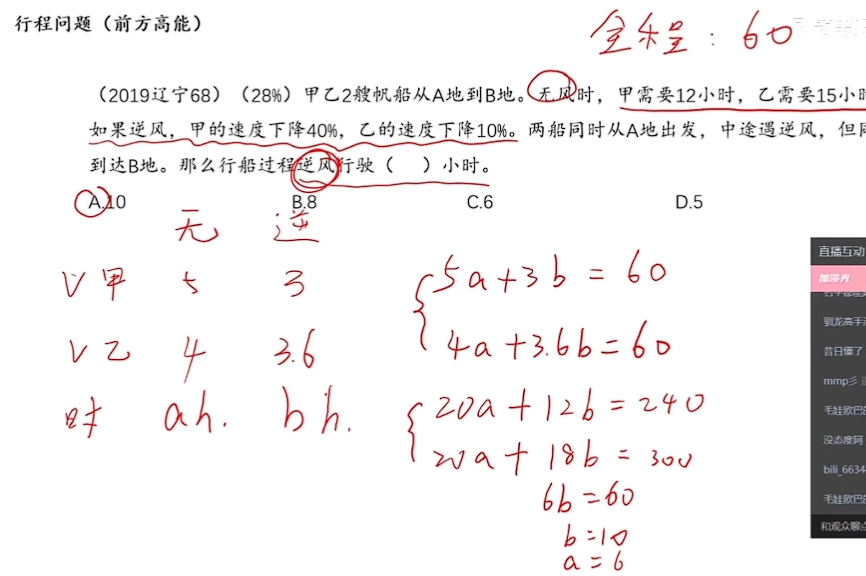 行程问题（前方高能）
全程：60
（2019辽宁68）（28%）甲乙2艘帆船从A地到B地。无风时，甲需要12小时，乙需要15小时
如果逆风，甲的速度下降40%，乙的速度下降10%。两船同时从A地出发，中途遇逆风，但同
到达B地。那么行船过程逆风行驶（ ）小时。
A.10 B.8 C.6 D.5
无 逆
V甲 5 3
V乙 4 3.6
时 ah. bh.
5a+3b=60
4a+3.6b=60
20a+12b=240
20a+18b=300
6b=60
b=10
a=6
直播互动
加滞光
驯龙高手
昔日懂了
mmp彡
毛娃欧巴
没态度阿
bili_6634
毛娃欧巴
和观众聊点